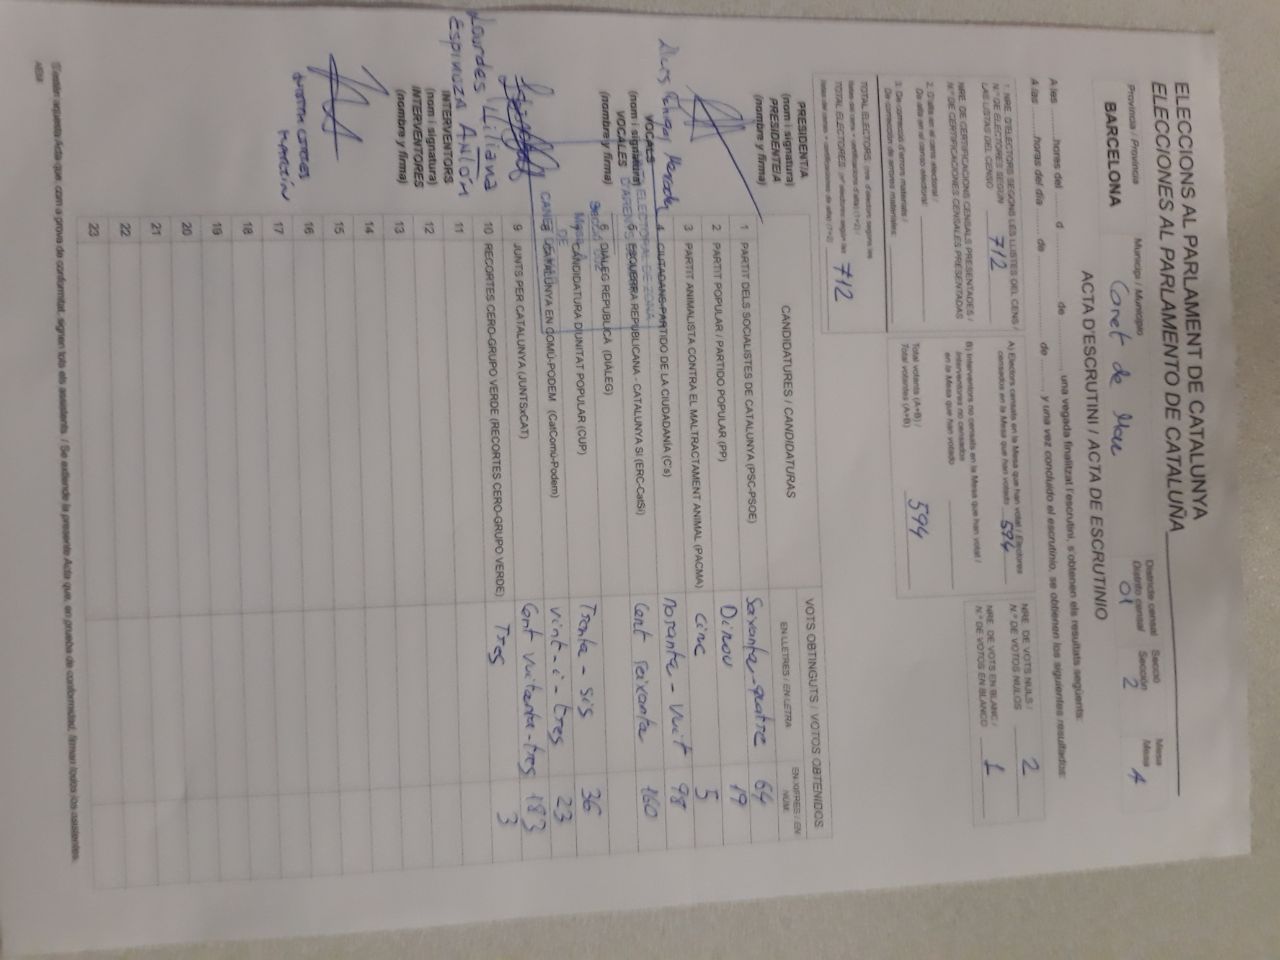 ELECCIONS AL PARLAMENT DE CATALUNYA
ELECCIONES AL PARLAMENTO DE CATALUÑA
Província / Provincia
BARCELONA
Municipi / Municipio
Canet de Mar
Districte censal
Distrito censal
01
Secció
Sección
2
Mesa
Mesa
A
ACTA D'ESCRUTINI / ACTA DE ESCRUTINIO
A les ........ hores del ........ d ........ de ........, una vegada finalitzat l'escrutini, s'obtenen els resultats següents:
A las ........ horas del día ........ de ........ de ........, y una vez concluido el escrutinio, se obtienen los siguientes resultados:
1. NRE. D'ELECTORS SEGONS LES LLISTES DEL CENS /
N.º DE ELECTORES SEGÚN
LAS LISTAS DEL CENSO 712
NRE. DE CERTIFICACIONS CENSALS PRESENTADES /
N.º DE CERTIFICACIONES CENSALES PRESENTADAS
2. D'alta en el cens electoral /
De alta en el censo electoral:
3. De correcció d'errors materials /
De corrección de errores materiales:
TOTAL ELECTORS:
TOTAL ELECTORES: 712
A) Electors censats en la Mesa que han votat / Electores
censados en la Mesa que han votado 594
B) Interventors no censats en la Mesa que han votat /
Interventores no censados
en la Mesa que han votado
Total votants (A+B) /
Total votantes (A+B) 594
NRE. DE VOTS NULS /
N.º DE VOTOS NULOS 2
NRE. DE VOTS EN BLANC /
N.º DE VOTOS EN BLANCO 1
CANDIDATURES / CANDIDATURAS
VOTS OBTINGUTS / VOTOS OBTENIDOS
EN LLETRES / EN LETRA
EN XIFRES / EN NÚM.
1 PARTIT DELS SOCIALISTES DE CATALUNYA (PSC-PSOE) Seixanta-quatre 64
2 PARTIT POPULAR / PARTIDO POPULAR (PP) Dinou 19
3 PARTIT ANIMALISTA CONTRA EL MALTRACTAMENT ANIMAL (PACMA) Cinc 5
4 CIUTADANS-PARTIDO DE LA CIUDADANÍA (C's) Noranta-vuit 98
5 ESQUERRA REPUBLICANA - CATALUNYA SÍ (ERC-CatSí) Cent seixanta 160
6 DIÀLEG REPUBLICÀ (DIÀLEG)
7 CANDIDATURA D'UNITAT POPULAR (CUP) Trenta-sis 36
8 CATALUNYA EN COMÚ-PODEM (CatComú-Podem) vint-i-tres 23
9 JUNTS PER CATALUNYA (JUNTSxCAT) Cent vuitanta-tres 183
10 RECORTES CERO-GRUPO VERDE (RECORTES CERO-GRUPO VERDE) Tres 3
11
12
13
14
15
16
17
18
19
20
21
22
23
PRESIDENT/A
(nom i signatura)
PRESIDENTE/A
(nombre y firma)
VOCALS
(nom i signatura)
VOCALES
(nombre y firma)
Lourdes Liliana
Espinoza
INTERVENTORS
(nom i signatura)
INTERVENTORES
(nombre y firma)
S'estén aquesta Acta que, com a prova de conformitat, signen tots els assistents. / Se extiende la presente Acta que, en prueba de conformidad, firman todos los asistentes.